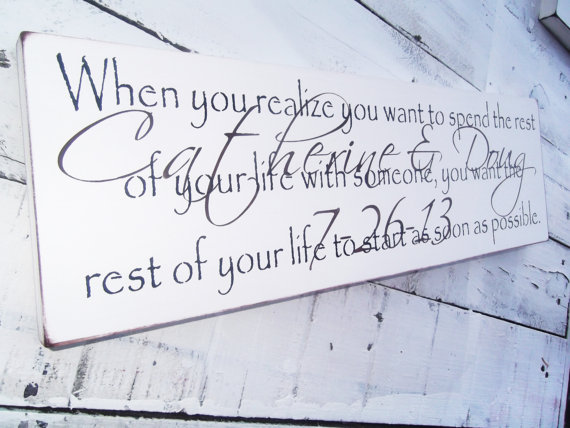 When you realize you want to spend the rest
Catherine & Doug
of your life with someone, you want the
7-26-13
rest of your life to start as soon as possible.